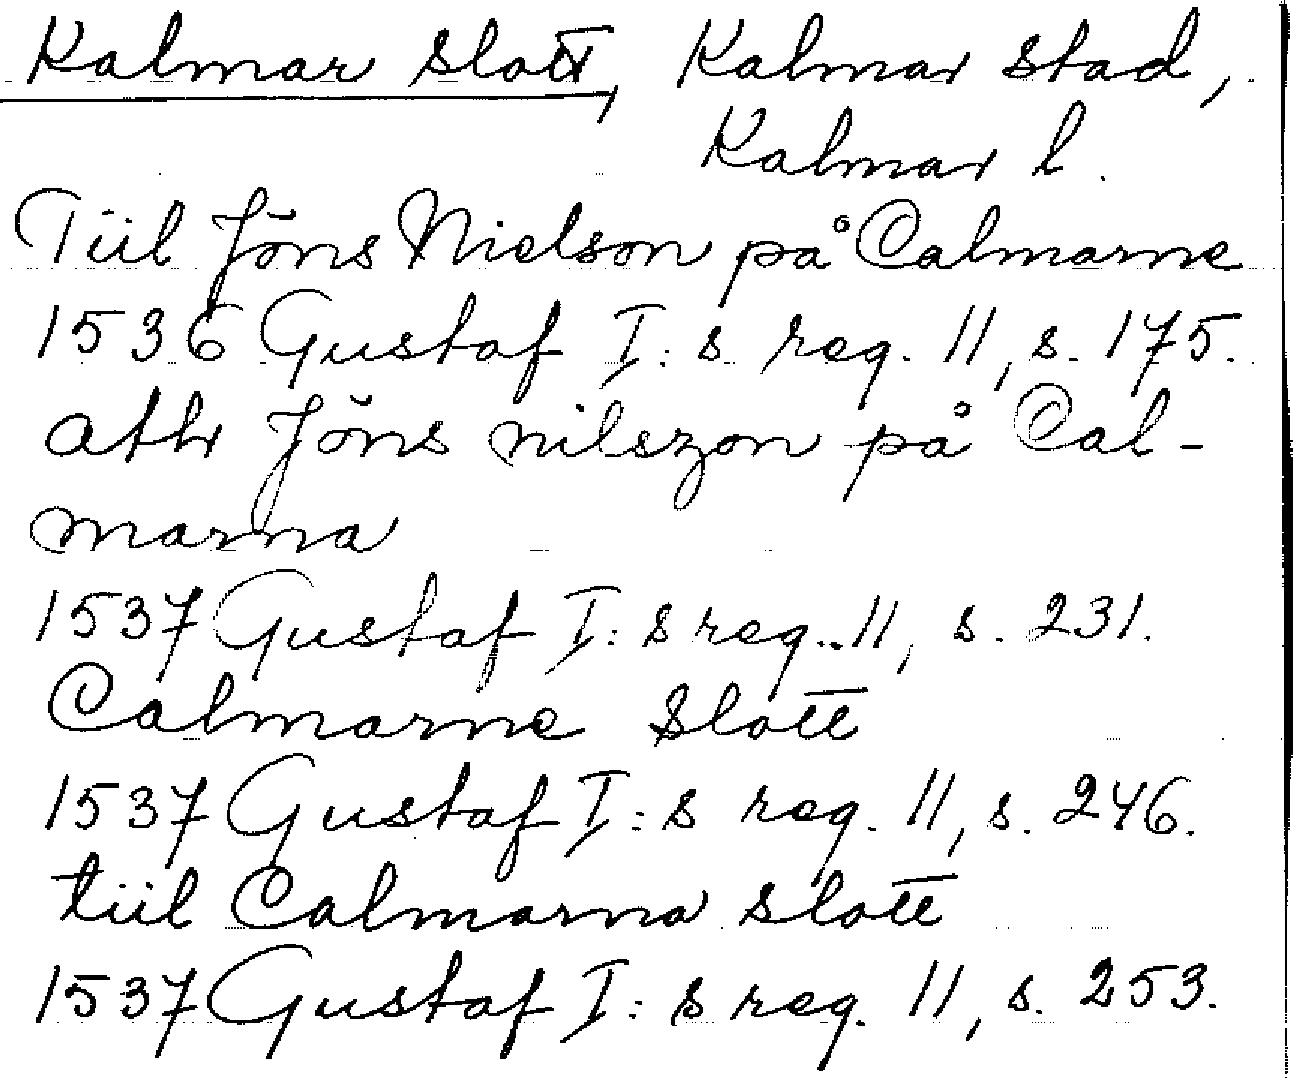 Kalmar slott, Kalmar stad,
Kalmar l.
Tiil Jöns Nielson på Calmarne
1536 Gustaf I:s reg. 11, s. 175.
athr Jöns nilszon på Cal-
marna
1537 Gustaf I:s reg. 11, s. 231.
Calmarne slott
1537 Gustaf I:s reg. 11, s. 246.
tiil Calmarna slott
1537 Gustaf I:s reg. 11, s. 253.